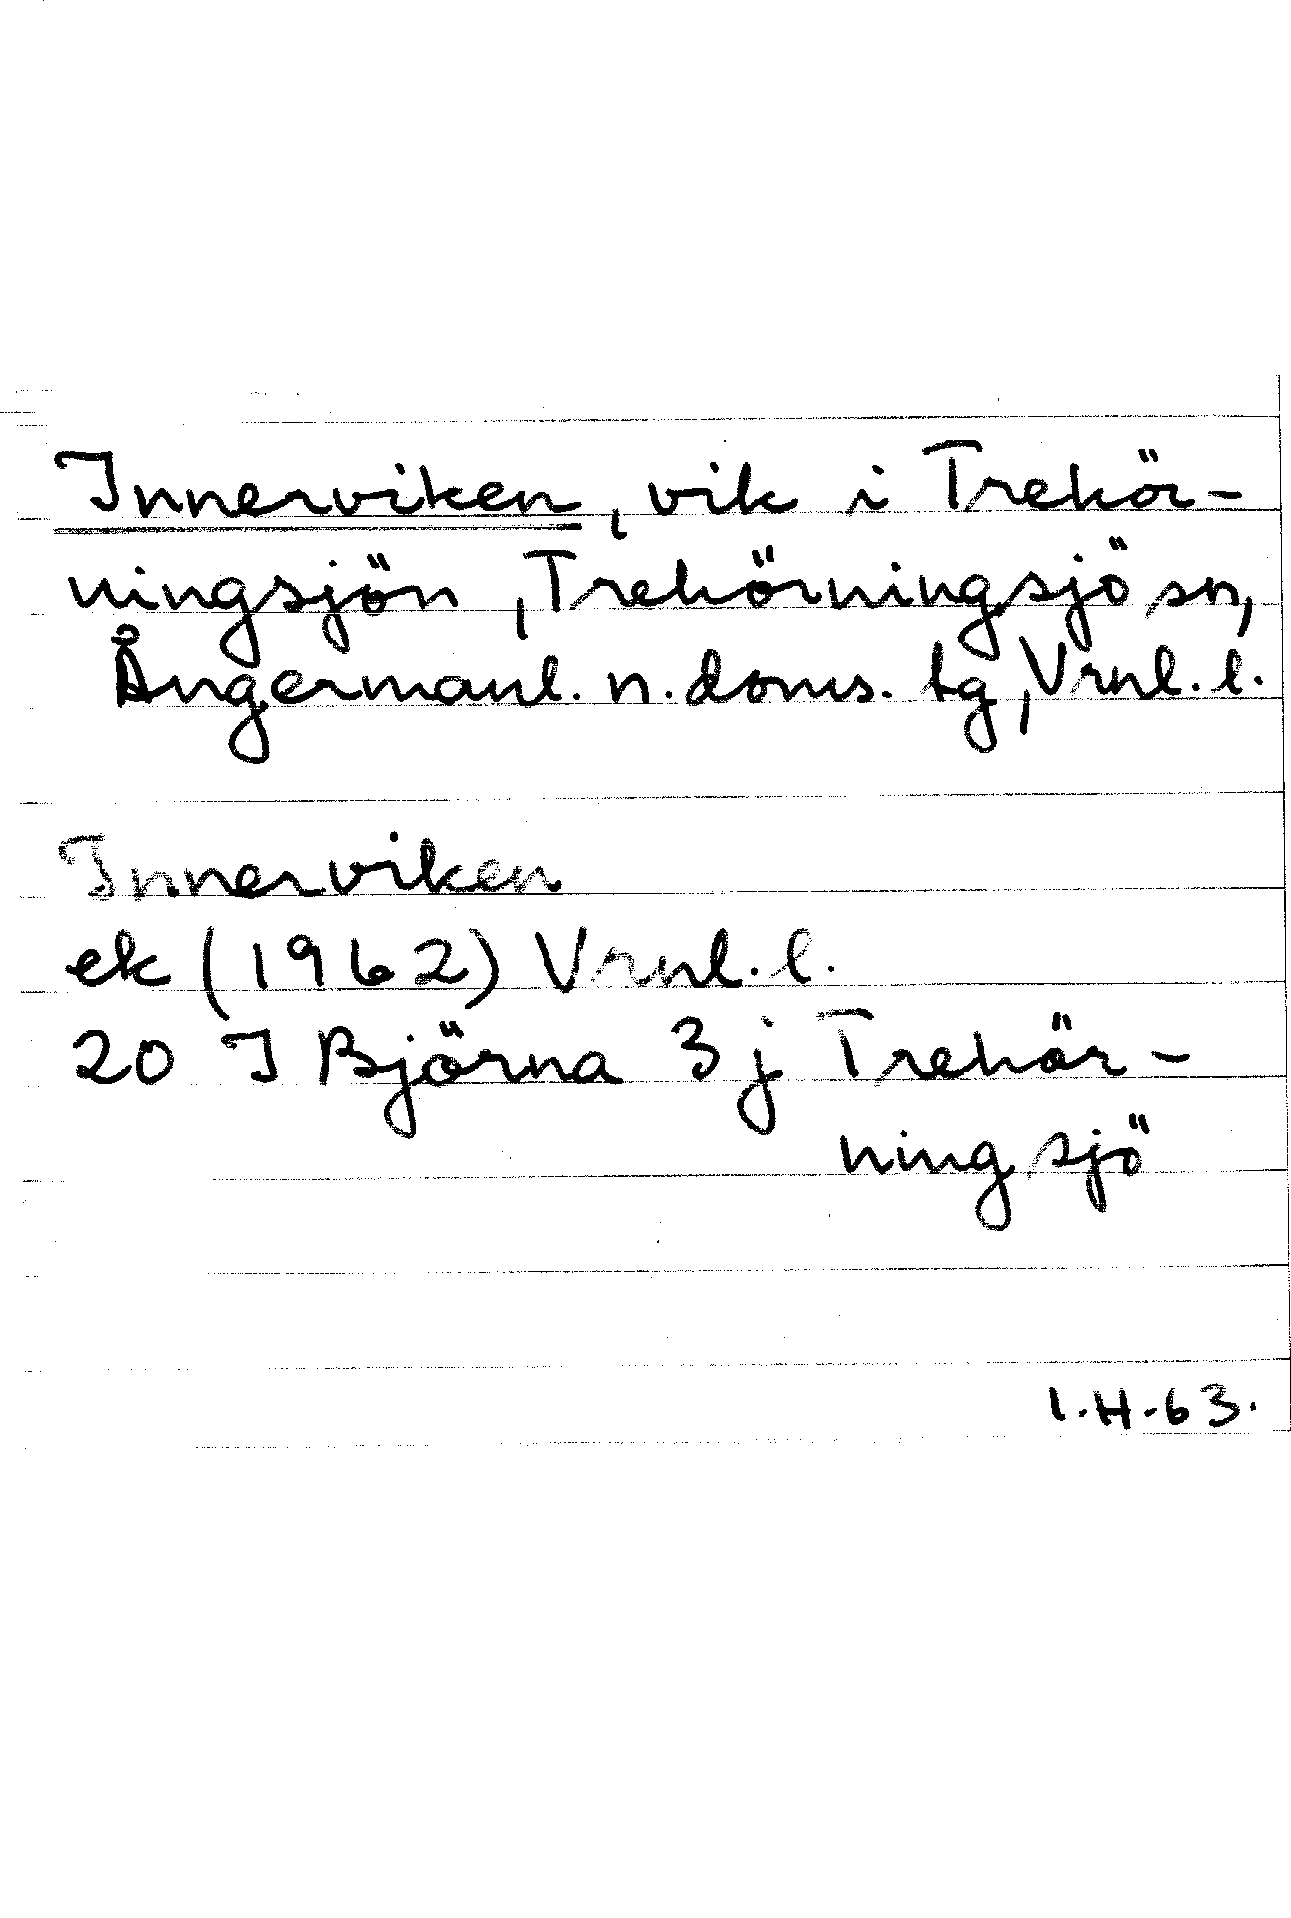 Innerviken, vik i Trehör-
ningsjön, Trehörningsjö sn,
Ångermanl. n. doms. tg, Vrnl. l.
Innerviken
ek (1962) Vrnl. l.
20 I Björna 3 j Trehör-
ningsjö
I.H-63.